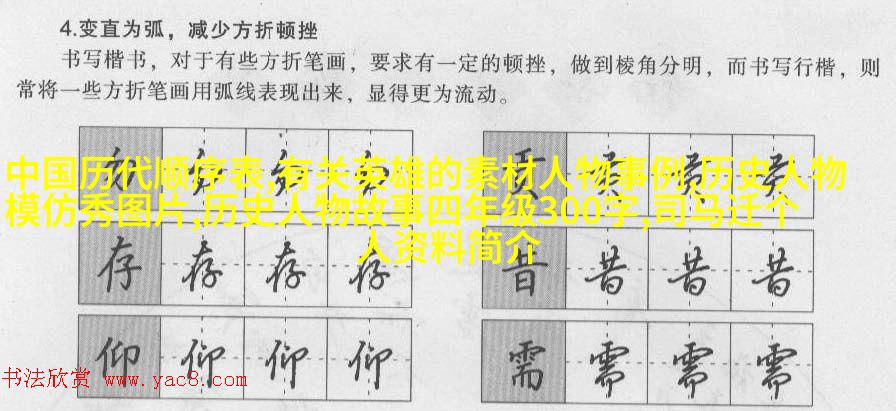 4.变直为弧，减少方折顿挫
书写楷书，对于有些方折笔画，要求有一定的顿挫，做到棱角分明，而书写行楷，则
常将一些方折笔画用弧线表现出来，显得更为流动。
中国历代顺序表,有关英雄的素材人物事例,历史人物
模仿秀图片,历史人物故事四年级300字,司马迁个
人资料简介
存 存 存 存 昔 昔 昔 昔
仰 仰 仰 仰 需 需 需 需
书法欣赏 www.yac8.com